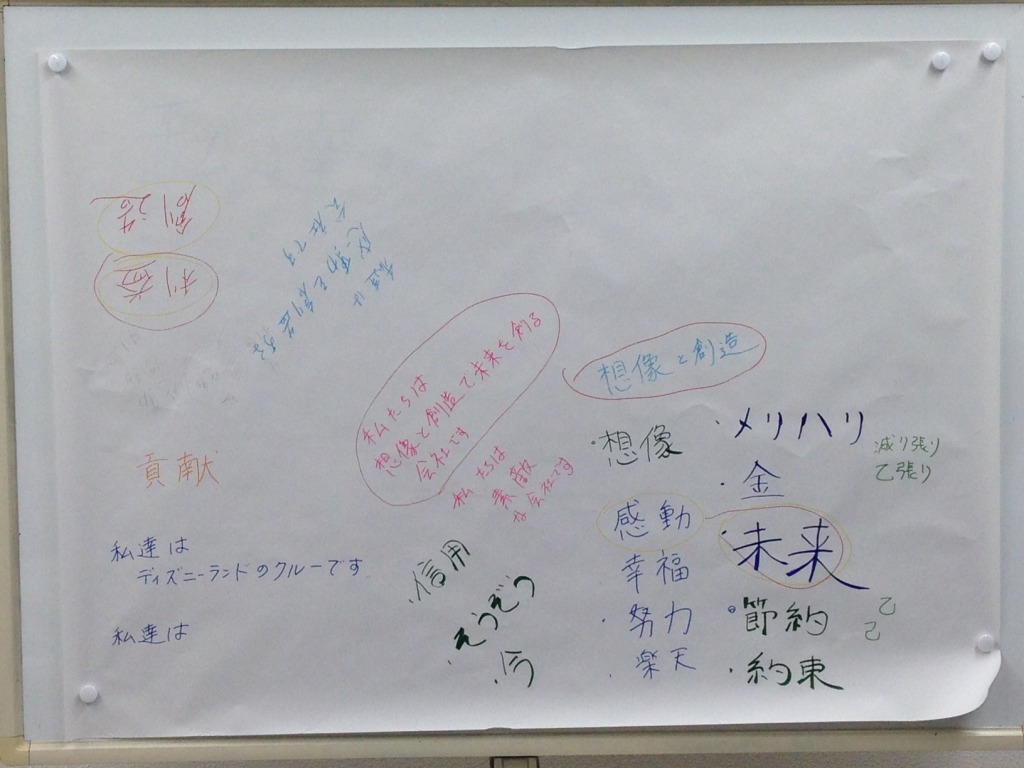 創造
利益
私達は
感動を創造する
会社です
私たちは
想像と創造で未来を創る
会社です
私たちは
素敵
な会社です
想像と創造
・想像
・メリハリ
減り張り
乙張り
・金
感動
・未来
幸福
・努力
・楽天
・節約
乙
己
・約束
貢献
私達は
ディズニーランドのクルーです
私達は
・信用
・そうぞう
・今